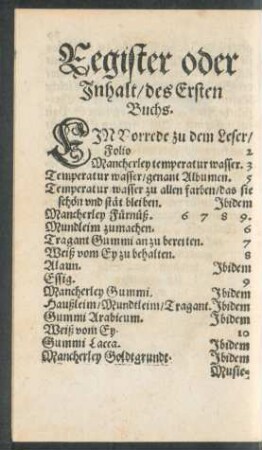 Register oder
Inhalt/des Ersten
Buchs.
EIN Vorrede zu dem Leser/
Folio 2
Mancherley temperatur wasser. 3
Temperatur wasser/genant Albumen. 5
Temperatur wasser zu allen farben/das sie
schön vnd stät bleiben. Ibidem
Mancherley Fürnüß. 6 7 8 9.
Mundleim zumachen. 6
Tragant Gummi an zu bereiten. 7
Weiß vom Ey zu behalten. 8
Alaun. Ibidem
Essig. 9
Mancherley Gummi. Ibidem
Haußleim/Mundtleim/Tragant. Ibidem
Gummi Arabicum. Ibidem
Weiß vom Ey. 10
Gummi Lacca. Ibidem
Mancherley Goldtgrundt. Ibidem
Musie-